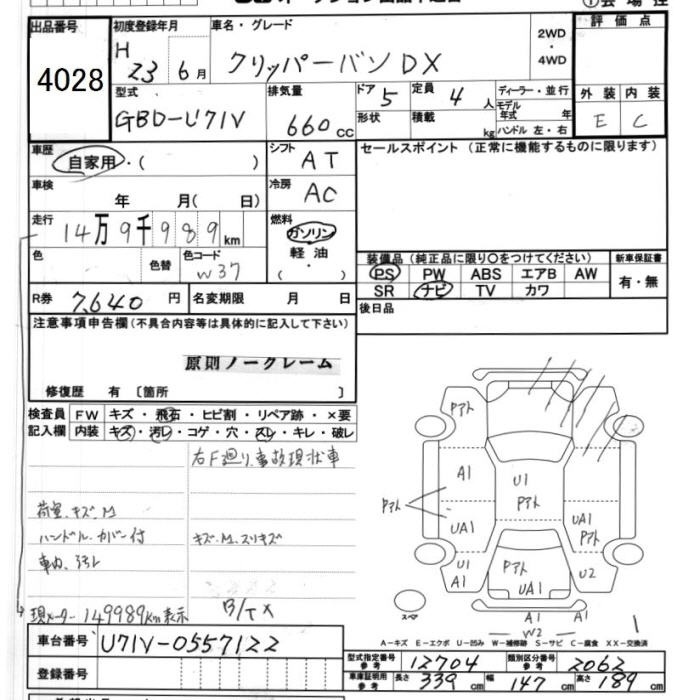 出品番号
4028
初度登録年月
H 23 6月
車名・グレード
クリッパーバン DX
2WD
・
4WD
評価点
型式
GBD-U71V
排気量
660 cc
ドア 5
形状
定員 4 人
積載 kg
ディーラー・並行
モデル年式 年
ハンドル 左・右
外装 内装
E C
車歴
自家用・( )
シフト
AT
セールスポイント（正常に機能するものに限ります）
車検
年 月( 日)
冷房
AC
走行
14万9千989km
燃料
ガソリン
軽油
・
( )
色
色替
色コード
W37
装備品（純正品に限り○をつけてください）
新車保証書
PS PW ABS エアB AW
有・無
SR ナビ TV カワ
R券 7,640 円
名変期限 月 日
後日品
注意事項申告欄(不具合内容等は具体的に記入して下さい)
原則ノークレーム
修復歴 有 〔箇所 〕
検査員 FW キズ・飛石・ヒビ割・リペア跡・×要
記入欄 内装 キズ・汚レ・コゲ・穴・スレ・キレ・破レ
右F廻り、事故現状車
荷室、キズ、M
ハンドル、カバー付
キズ、M、スリキズ
車内、汚レ
現メーター 149989km表示
B/TX
Pアト
A1
U1
Pアト
Pアト
UA1
UA1
Pアト
U1
A1
Pアト
UA1
U2
A1
A1
W2
スペア
A－キズ E－エクボ U－凹み W－補修跡 S－サビ C－腐食 XX－交換済
車台番号 U71V-0557122
型式指定番号 参考 12704
類別区分番号 参考 2062
登録番号
車庫証明用 参考 長さ 339cm 幅 147cm 高さ 189cm